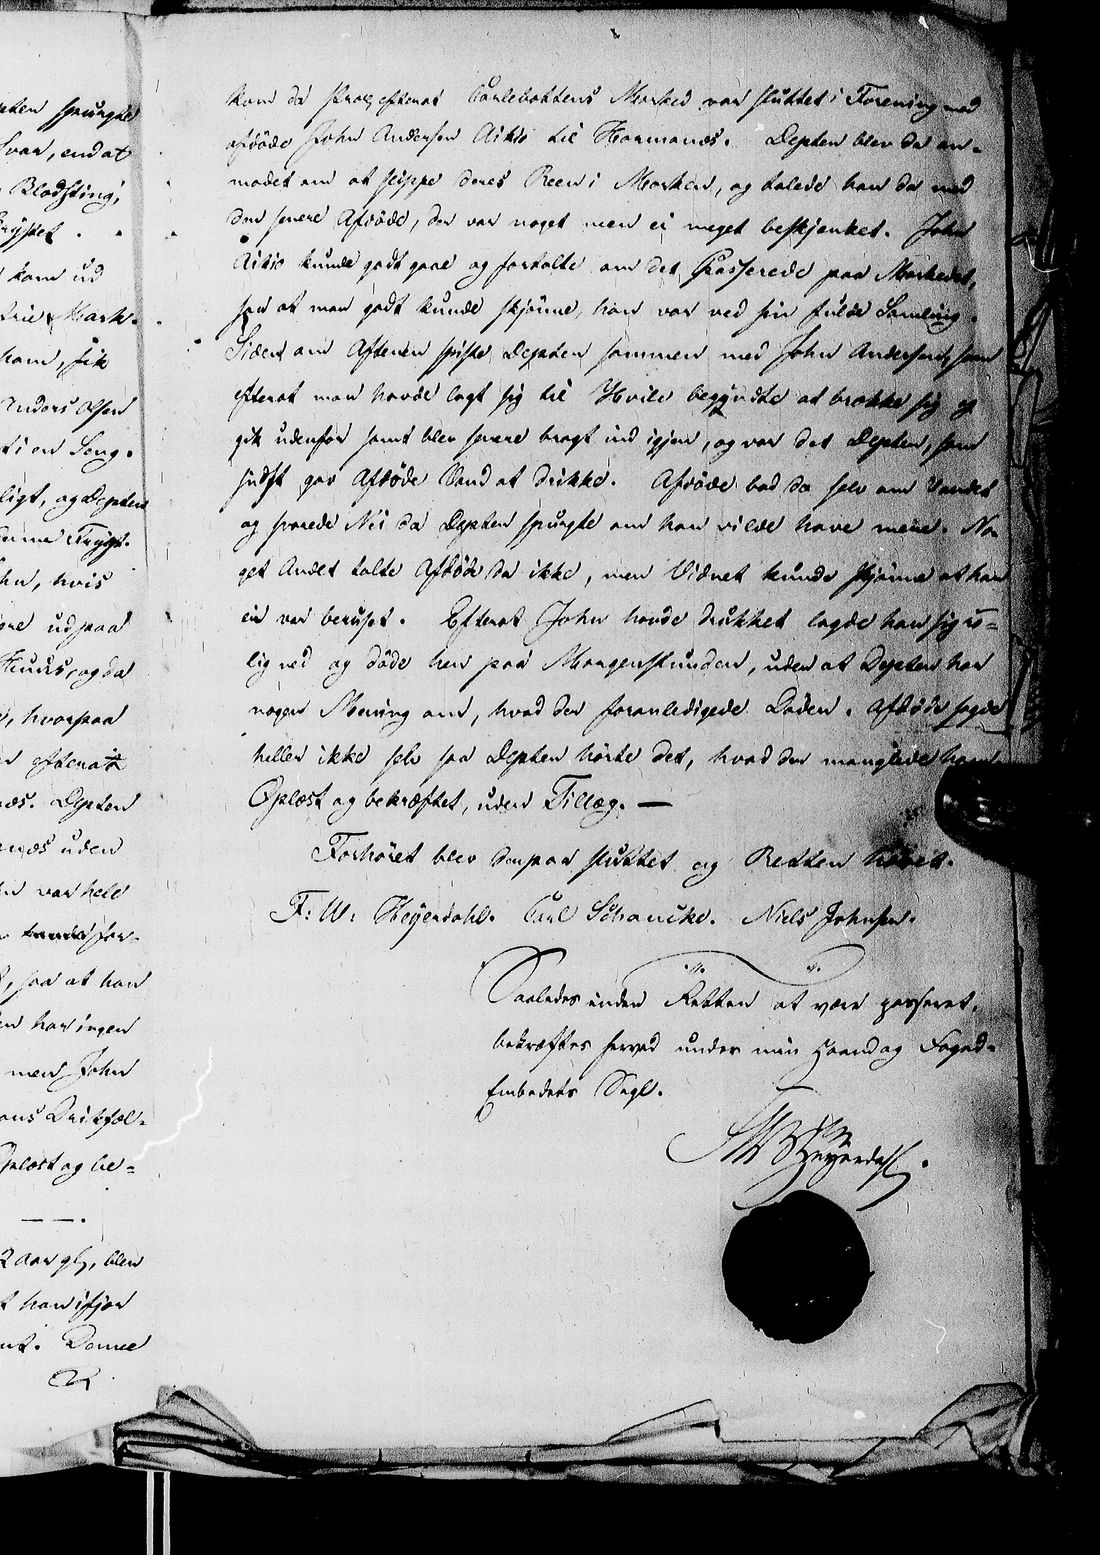 pten spurgte
Svar, end at
Blodsting,
Frystet
kom ud
Mark-
ham, fik
Anders Olsen
i en Seng.
ligt, og Depten
Frygt.
hn, hvis
ud paa
Huus, og da
, hvorpaa
efterat
næs. Depten
næs uden
n var hele
for-
, saa at han
en har ingen
men John
ans Drikfæl-
Oplæst og be-
2 Aar gl, blev
t han ifjor
nt. Denne
kom da strax efterat Carlebottens Marked var sluttet i Forening med
afdöde John Andersen Aikio til Hormanæs. Depten blev da an-
modet om at slippe deres Reen i Marken, og talede han da med
den senere Afdöde, der var noget men ei meget beskjenket. John
Aikio kunde godt gaae og fortalte om det Passerede paa Markedet,
saa at man godt kunde skjönne, han var ved sin fulde Samling.
Siden om Aftenen spiste Depten sammen med John Andersen, som
efterat man havde lagt sig til Hvile begyndte at brække sig og
gik udenfor samt blev senere bragt ind igjen, og var det Depten, som
sidst gav Afdöde Vand at drikke. Afdöde bad da selv om Vandet
og svarede Nei da Depten spurgte om han vilde have mere. No-
get Andet talte Afdöde da ikke, men Vidnet kunde skjönne at han
ei var beruset. Efterat John havde drukket lagde han sig ro-
lig ned og döde hen paa Morgenstunden, uden at Depten har
nogen Mening om, hvad der foranledigede Döden. Afdöde sagde
heller ikke selv saa Depten hörte det, hvad der manglede ham
Oplæst og bekræftet, uden Tillæg. —
Forhöret blev derpaa sluttet og Retten hævet.
F: W: Heyerdahl. Carl Schancke. Niels Johnsen.
Saaledes inden Retten at være passeret,
bekræftes herved under min Haand og Foged-
Embedets Segl.
FW Heyerdahl.